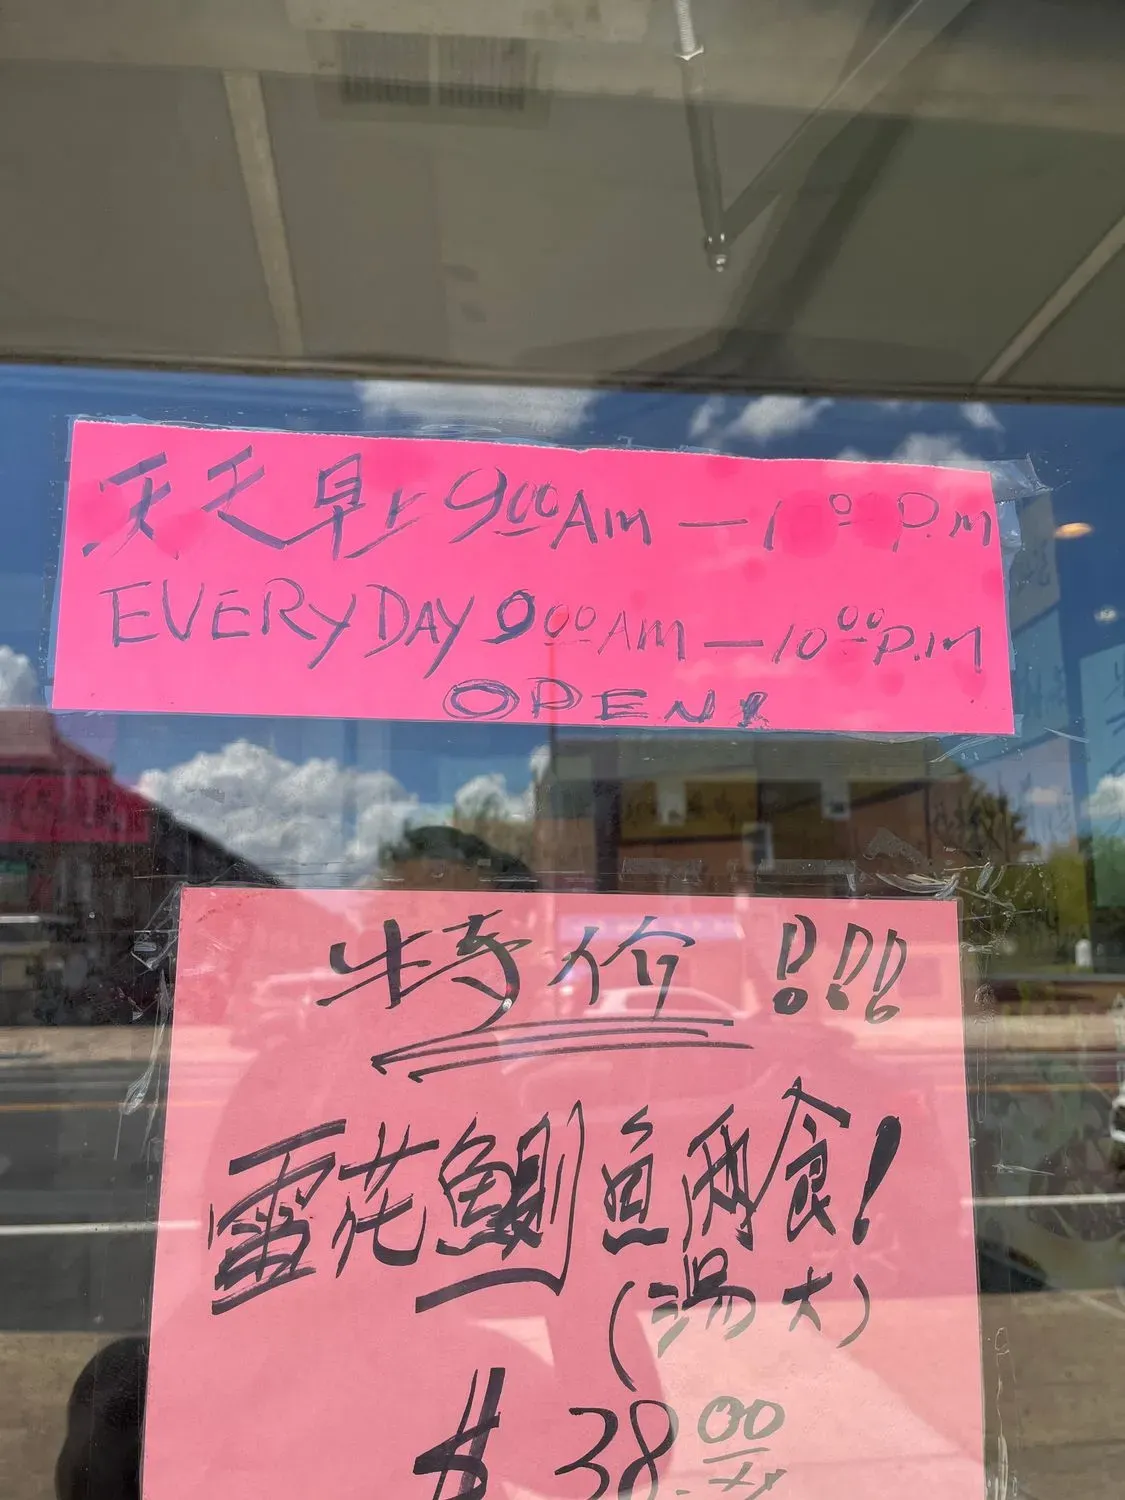 天天早上 9:00 Am — 10:00 P.m
EVERYDAY 9:00 AM — 10:00 P.M
OPEN!
特价 !!!
雪花鲗鱼两食!
(湯大)
$ 38.00